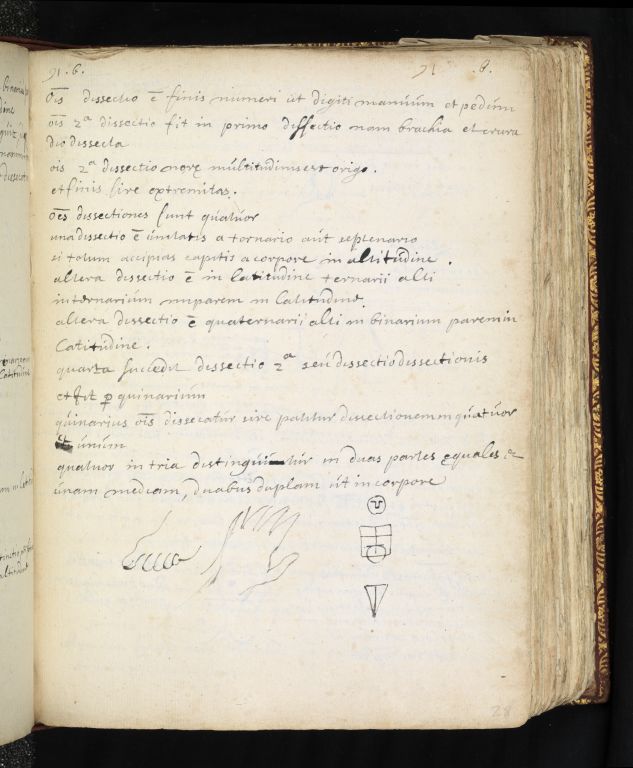 91. 6. 91 .6.
ōīs dissectio ē finis numeri ut digiti manuum et pedum
ōīs 2ª dissectio fit in primo dissectio nam brachia et crura
dissecta
ois 2ª dissectio multitudinis est origo.
et finis sive extremitas.
ōēs dissectiones sunt quatuor
una dissectio ē unitatis a tornario aut septenario
si totum accipias capitis a corpore in altitudine.
altera dissectio ē in latitudine ternarii alti
in ternarium imparem in latitudine.
altera dissectio ē quaternarii alti in binarium parem in
latitudine.
quarta succedit dissectio 2ª seu dissectio dissectionis
et fit p quinarium
quinarius ōīs dissecatur sive patitur dissectionem in quatuor
et unum
quatuor in tria distinguuntur in duas partes ęquales &
unam mediam, duabus duplam ut in corpore
28